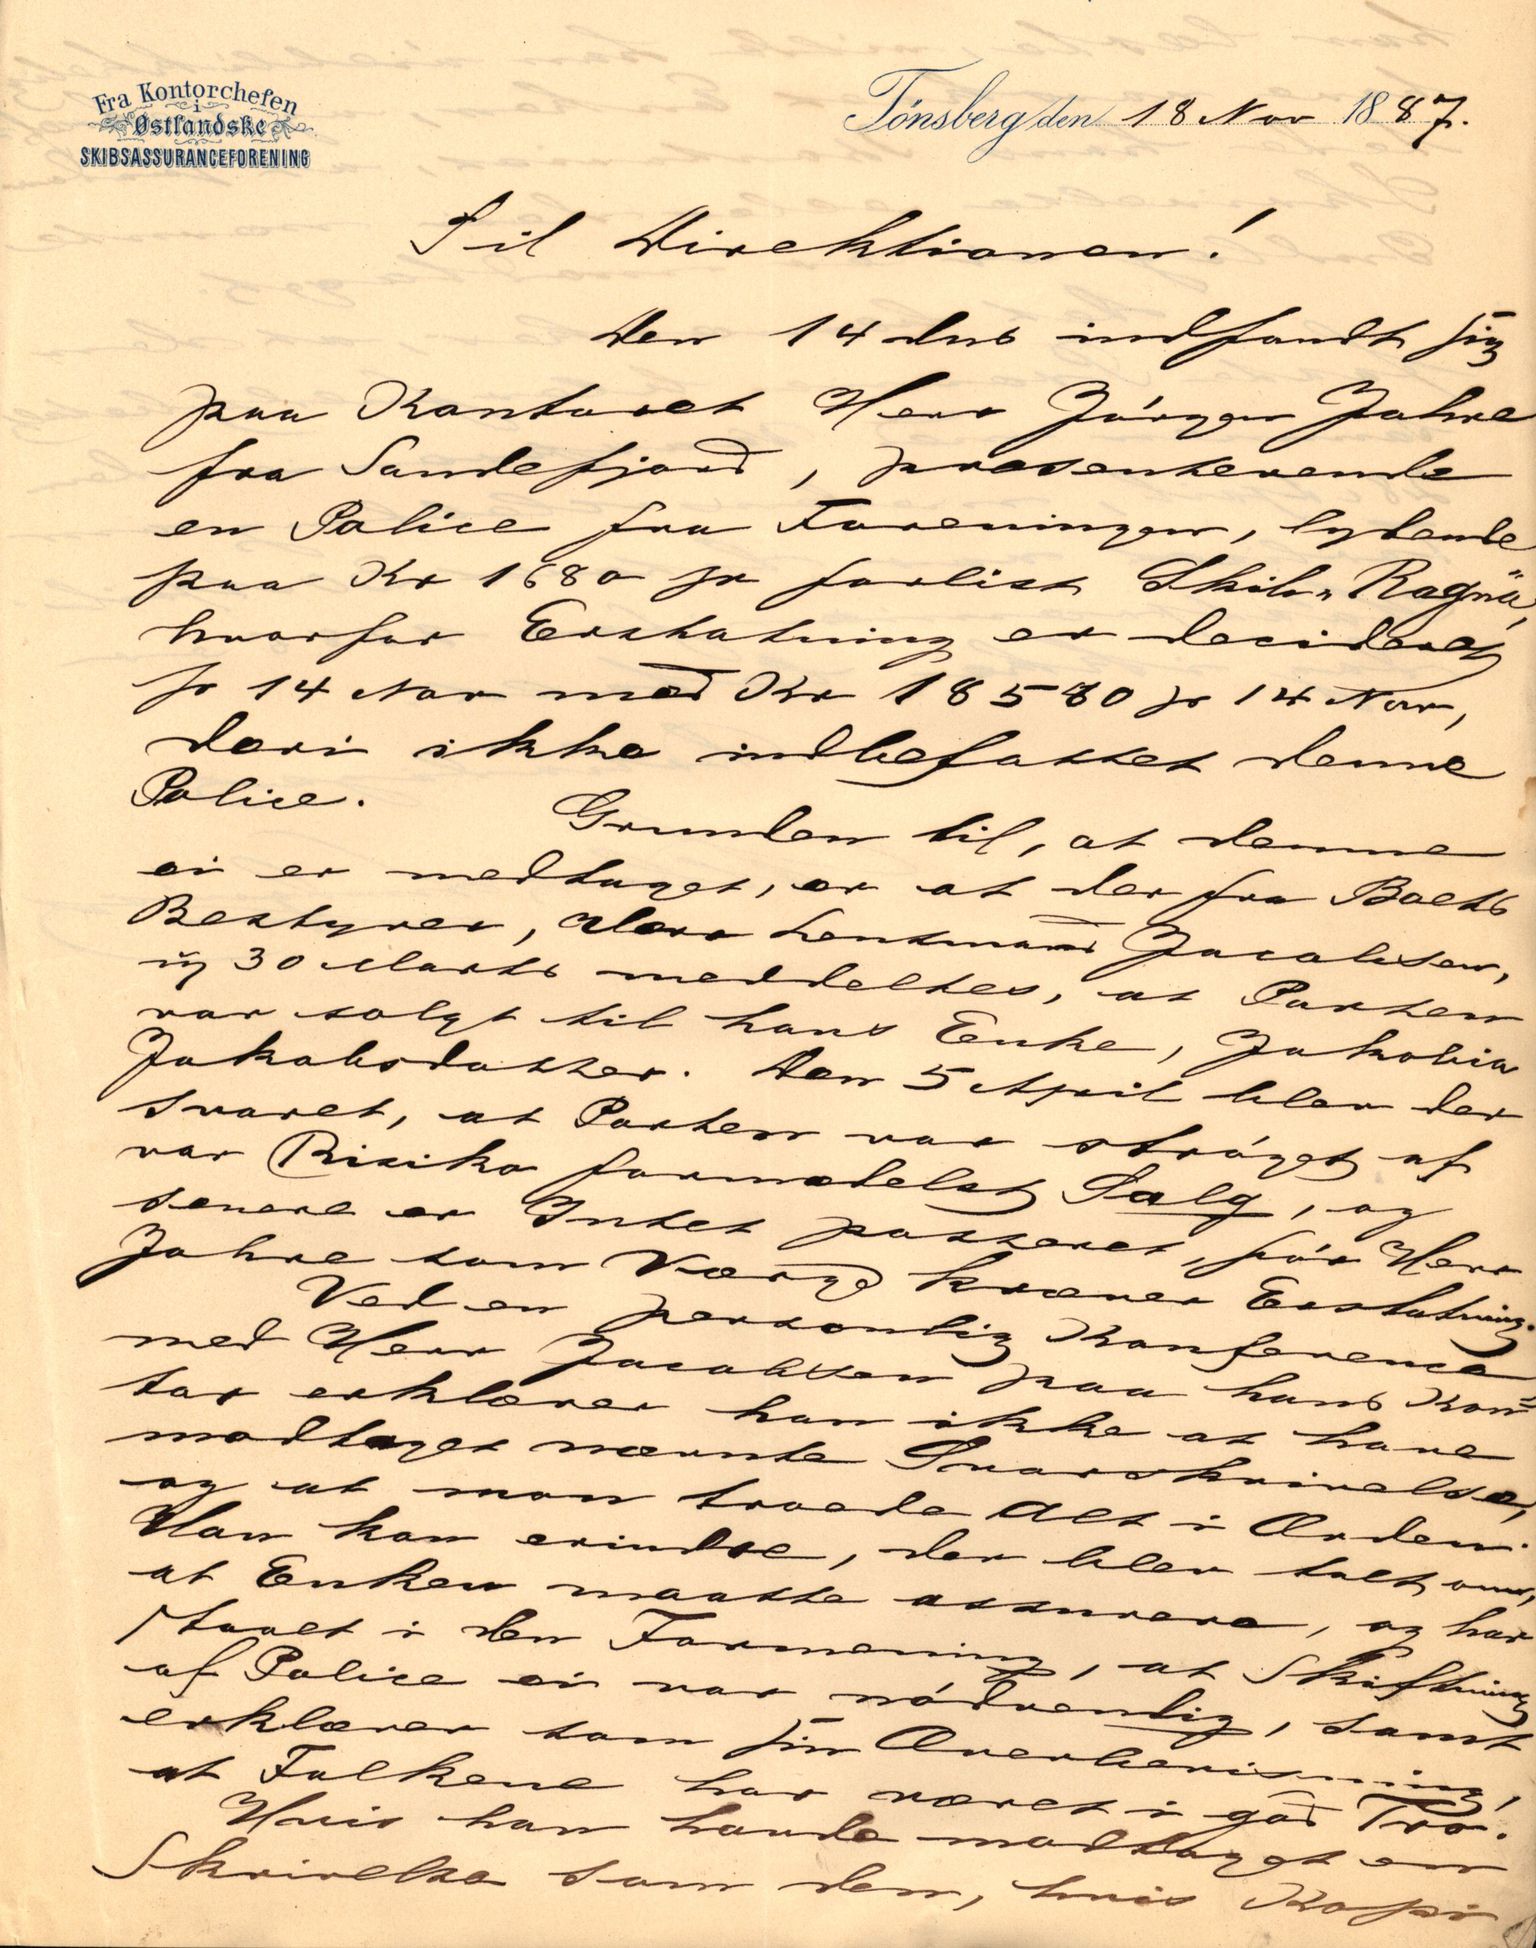 Fra Kontorchefen
i
Østlandske
SKIBSASSURANCEFORENING
Tönsberg den 18 Nov 1887.
Til Direktionen!
Den 14 ds indfandt sig
paa Kontoret Herr Jörgen Jahre
fra Sandefjord, presenterende
en Police fra Foreningen, lydende
paa Kr 1680 pr forlist Skib "Ragna",
hvorfor Erstatning er decideret
pr 14 Nov med Kr 18580 pr 14 Nov,
deri ikke indbefattet denne
Police.
Grunden til, at denne
ei er medtaget, er at der fra Baets
Bestyrer, Herr Lensmand Jacobsen,
30 Marts meddeltes, at Parten
var solgt til hans Enke, Jakobia
Jakobsdatter. Den 5 April blev der
svaret, at Parten var ströget af
vor Risiko formedelst Salg, og
senere er Intet passeret, för Herr
Jahre som Værge kræver Erstatning.
Ved en personlig Konference
med Herr Jacobsen paa hans Kon-
tor erklærer han ikke at have
modtaget nævnte Svarskrivelse,
og at man troede Alt i Orden.
Han kan erindre, der blev talt om,
at Enken maatte assurere, og har
staaet i den Formening, at Skiftning
af Police ei var nödvendig, samt
erklærer som sin Overbevisning,
at Folkene har været i god Tro.
Hvis han havde modtaget en
Skrivelse som den, hvis Kopi